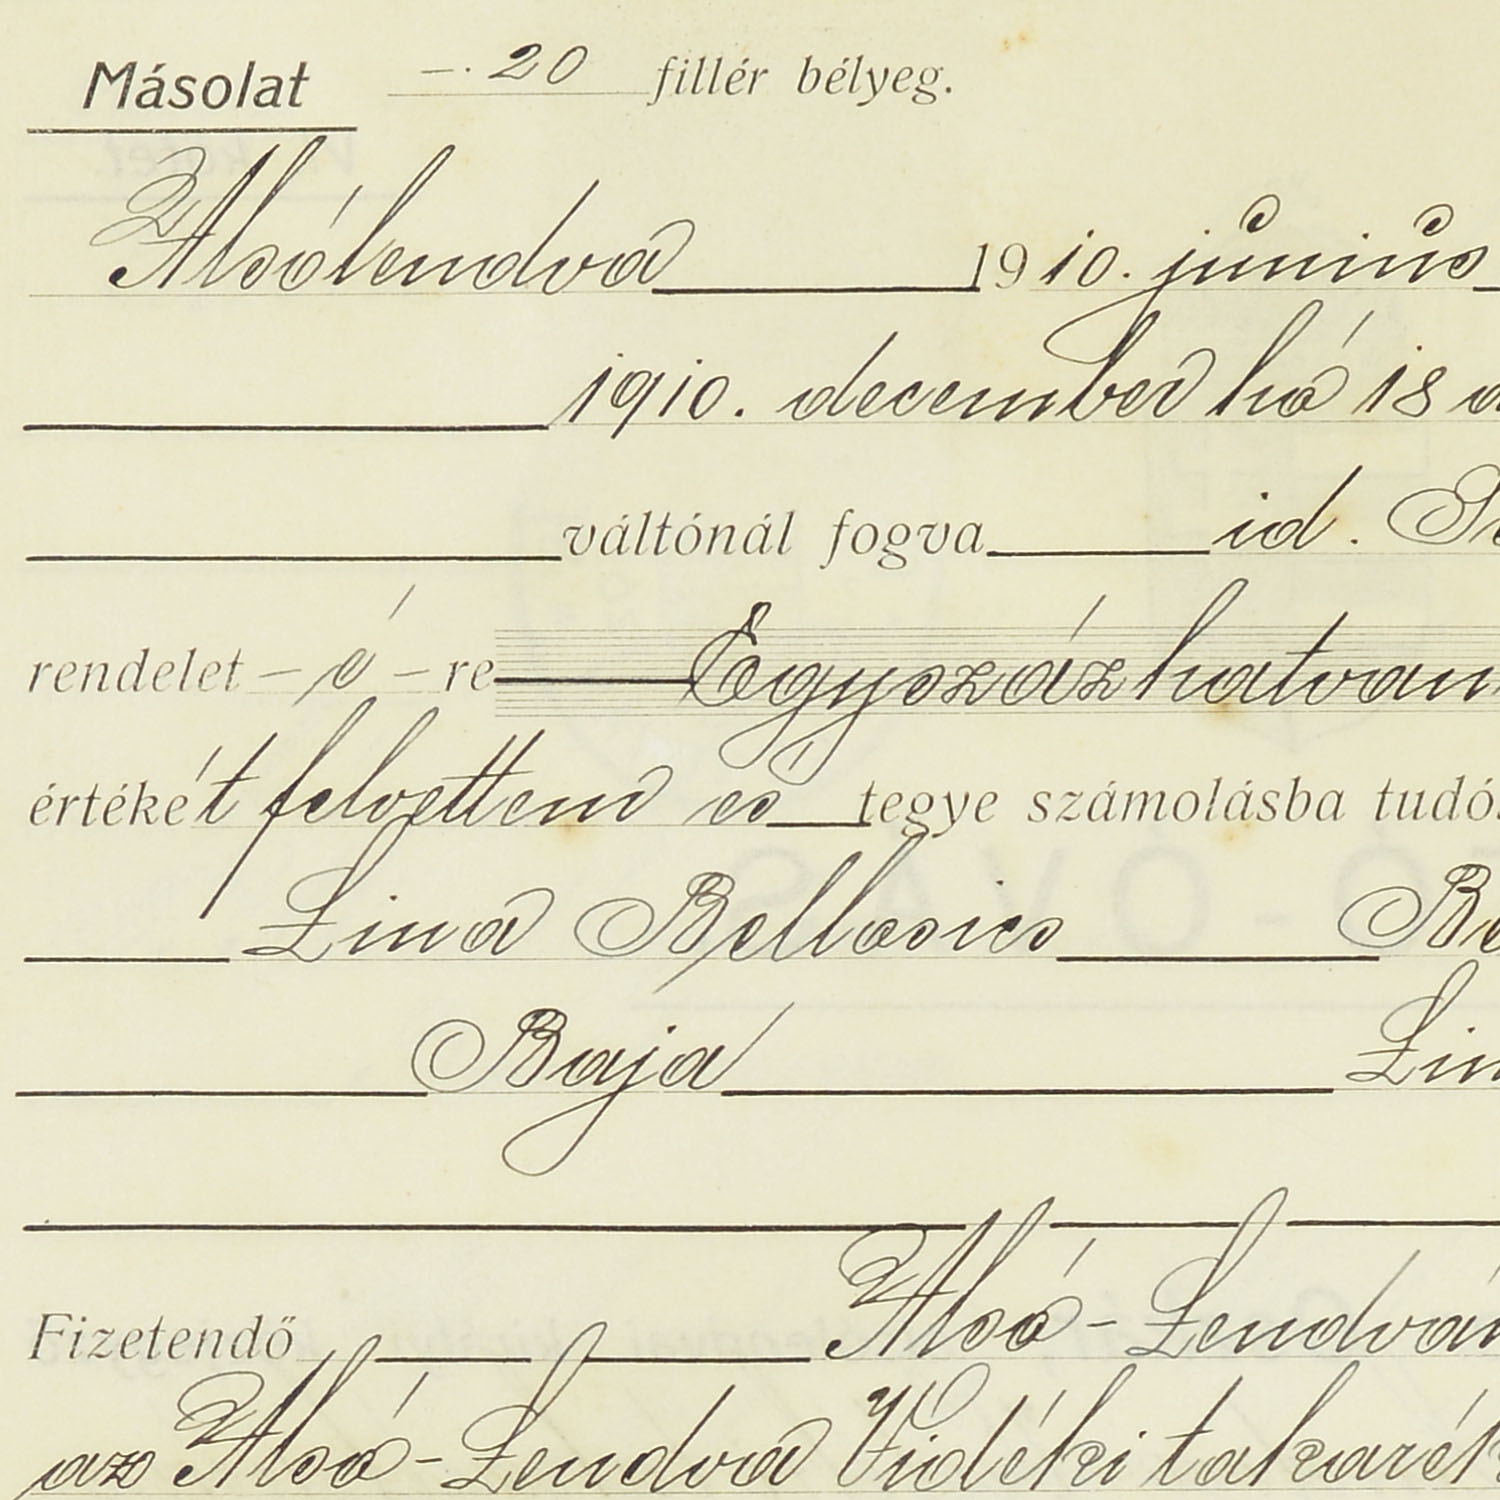 Másolat —. 20 fillér bélyeg.
Alsólendva 1910. június
1910. december hó 18
váltónál fogva id.
rendelet – é – re Egyszázhatvan
értékét felvettem és tegye számolásba
Lina Bellosics
Baja
Fizetendő Alsó-Lendván
az Alsó-Lendva Vidéki takarék